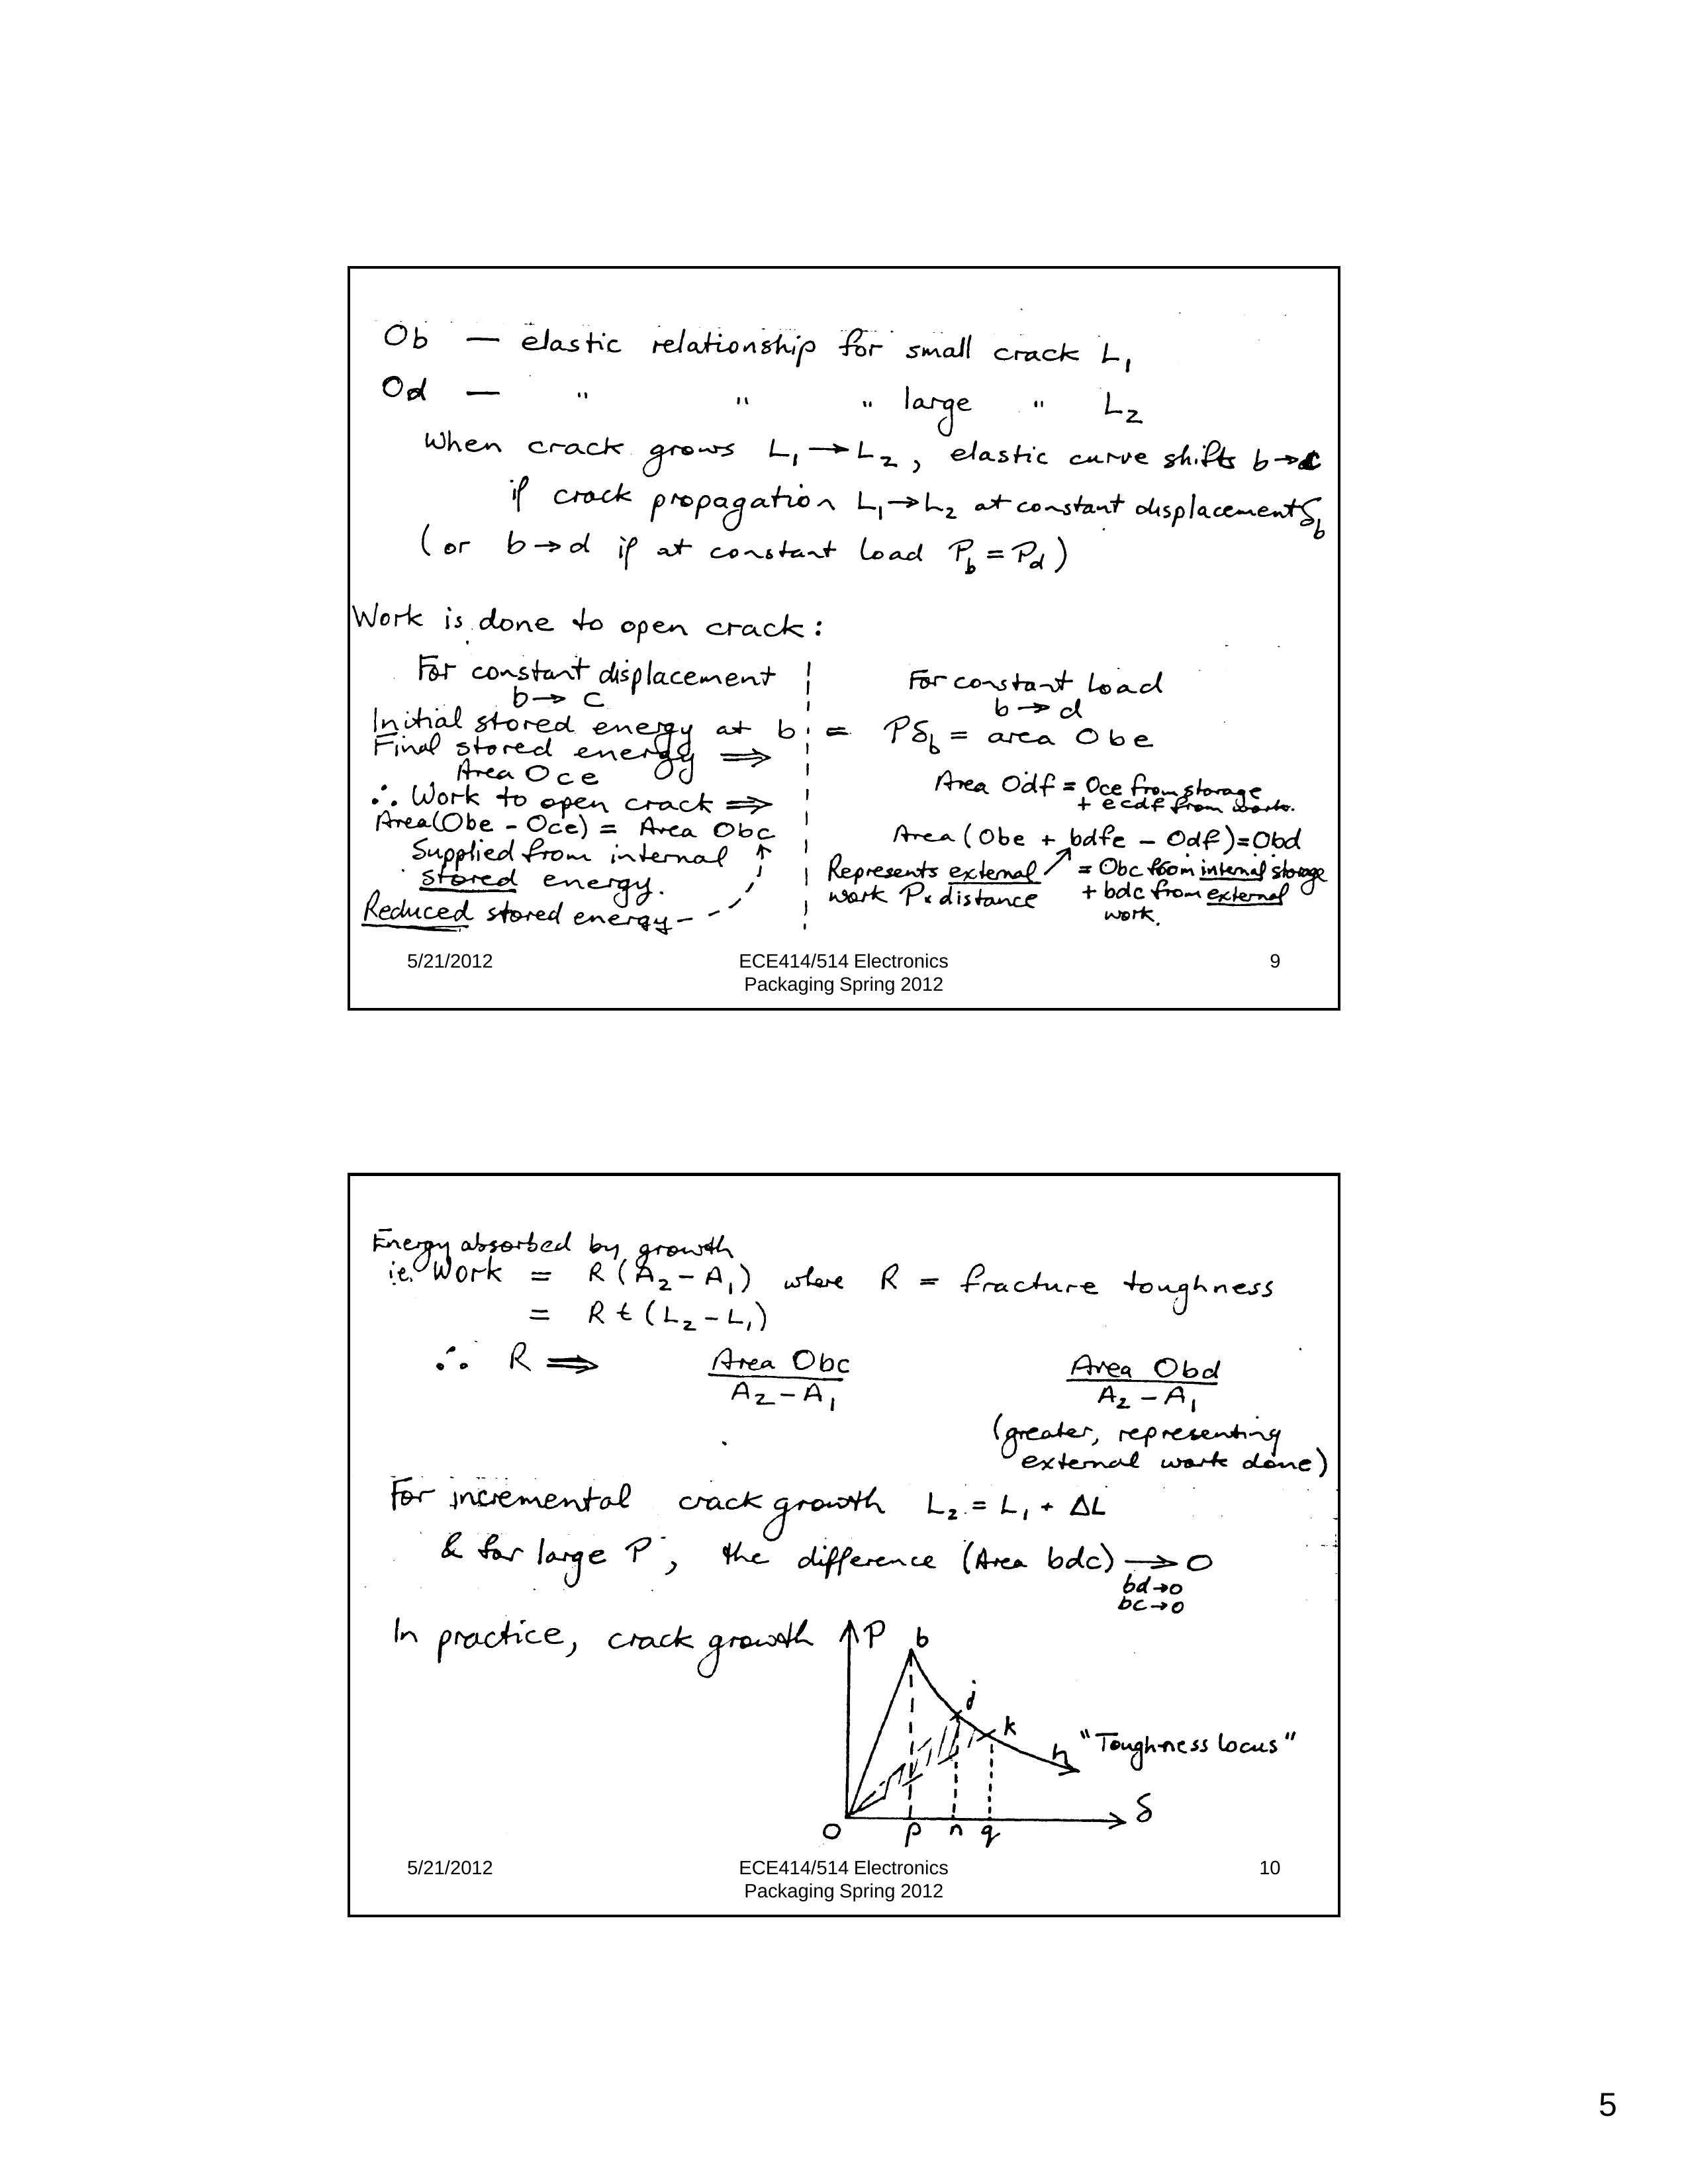 Ob — elastic relationship for small crack L₁
Od — " " " large " L₂
When crack grows L₁→L₂, elastic curve shifts b→c
if crack propagation L₁→L₂ at constant displacement δb
(or b→d if at constant load Pb = Pd)
Work is done to open crack:
For constant displacement
b→ c
Initial stored energy at b = Pδb = area Obe
Final stored energy ⇒
Area Oce
∴ Work to open crack ⇒
Area(Obe - Oce) = Area Obc
Supplied from internal
stored energy.
Reduced stored energy
For constant load
b→d
Area Odf = Oce from storage
+ ecdf from works.
Area (Obe + bdfe - Odf)=Obd
Represents external
work P x distance
= Obc from internal storage
+ bdc from external
work.
5/21/2012
ECE414/514 Electronics
Packaging Spring 2012
9
Energy absorbed by growth
ie. Work = R(A₂-A₁) where R = fracture toughness
= Rt(L₂-L₁)
∴ R ⇒ Area Obc Area Obd
A₂-A₁ A₂-A₁
(greater, representing
external work done)
For incremental crack growth L₂ = L₁ + ΔL
& for large P, the difference (Area bdc) → 0
bd→0
bc→0
In practice, crack growth
P b
j
k
h "Toughness locus"
δ
O p n q
5/21/2012
ECE414/514 Electronics
Packaging Spring 2012
10
5